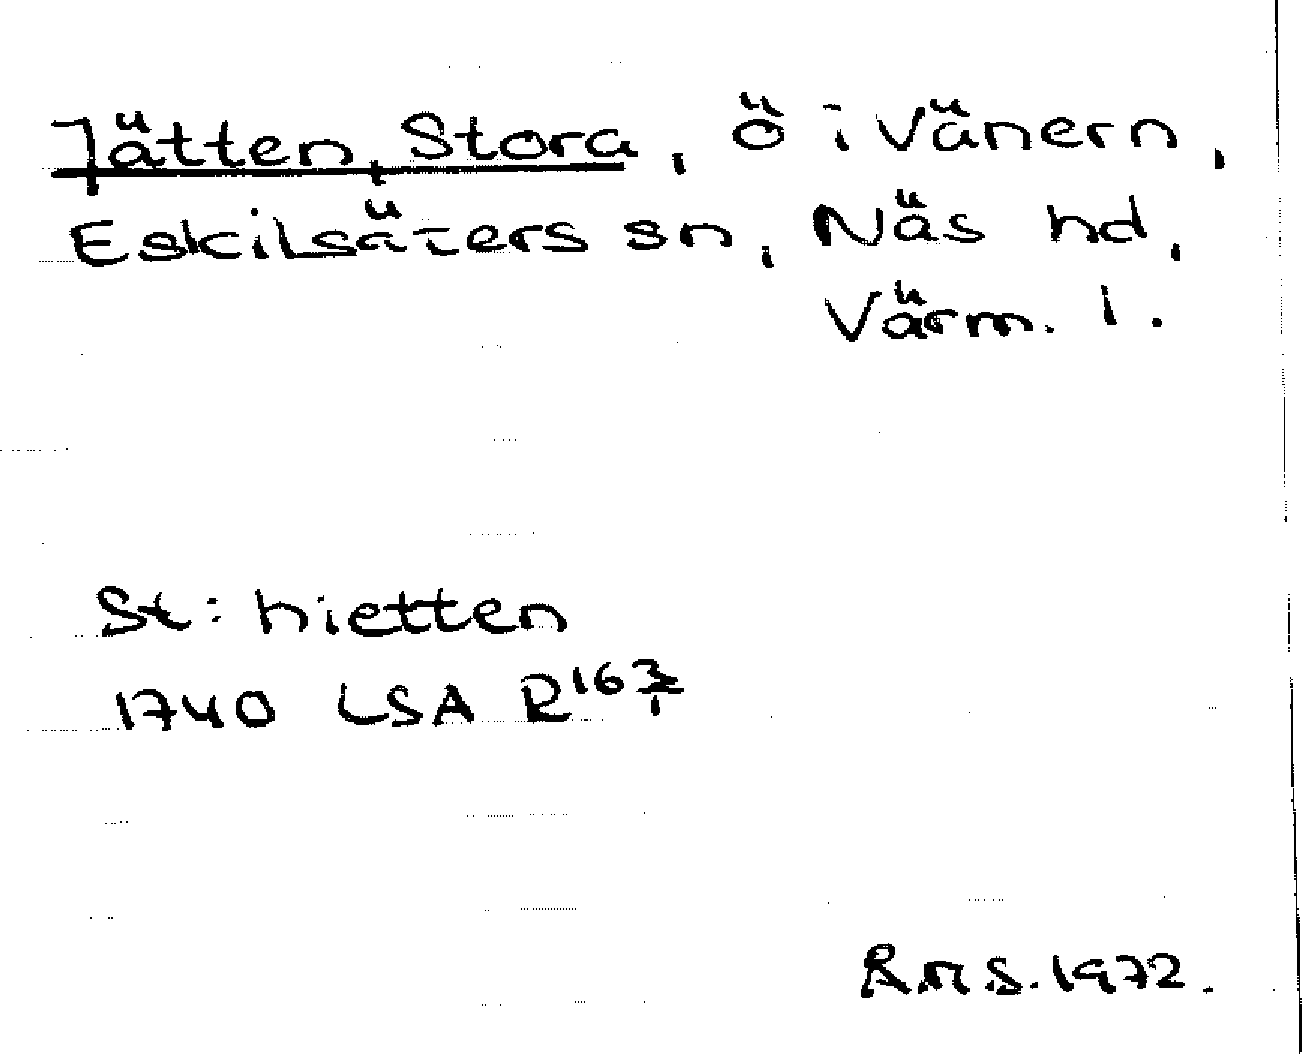 Jätten, Stora, ö i Vänern,
Eskilsäters sn, Näs hd,
Värm. l.
St: hietten
1740 LSA R 163/1
R.M.S. 1972.